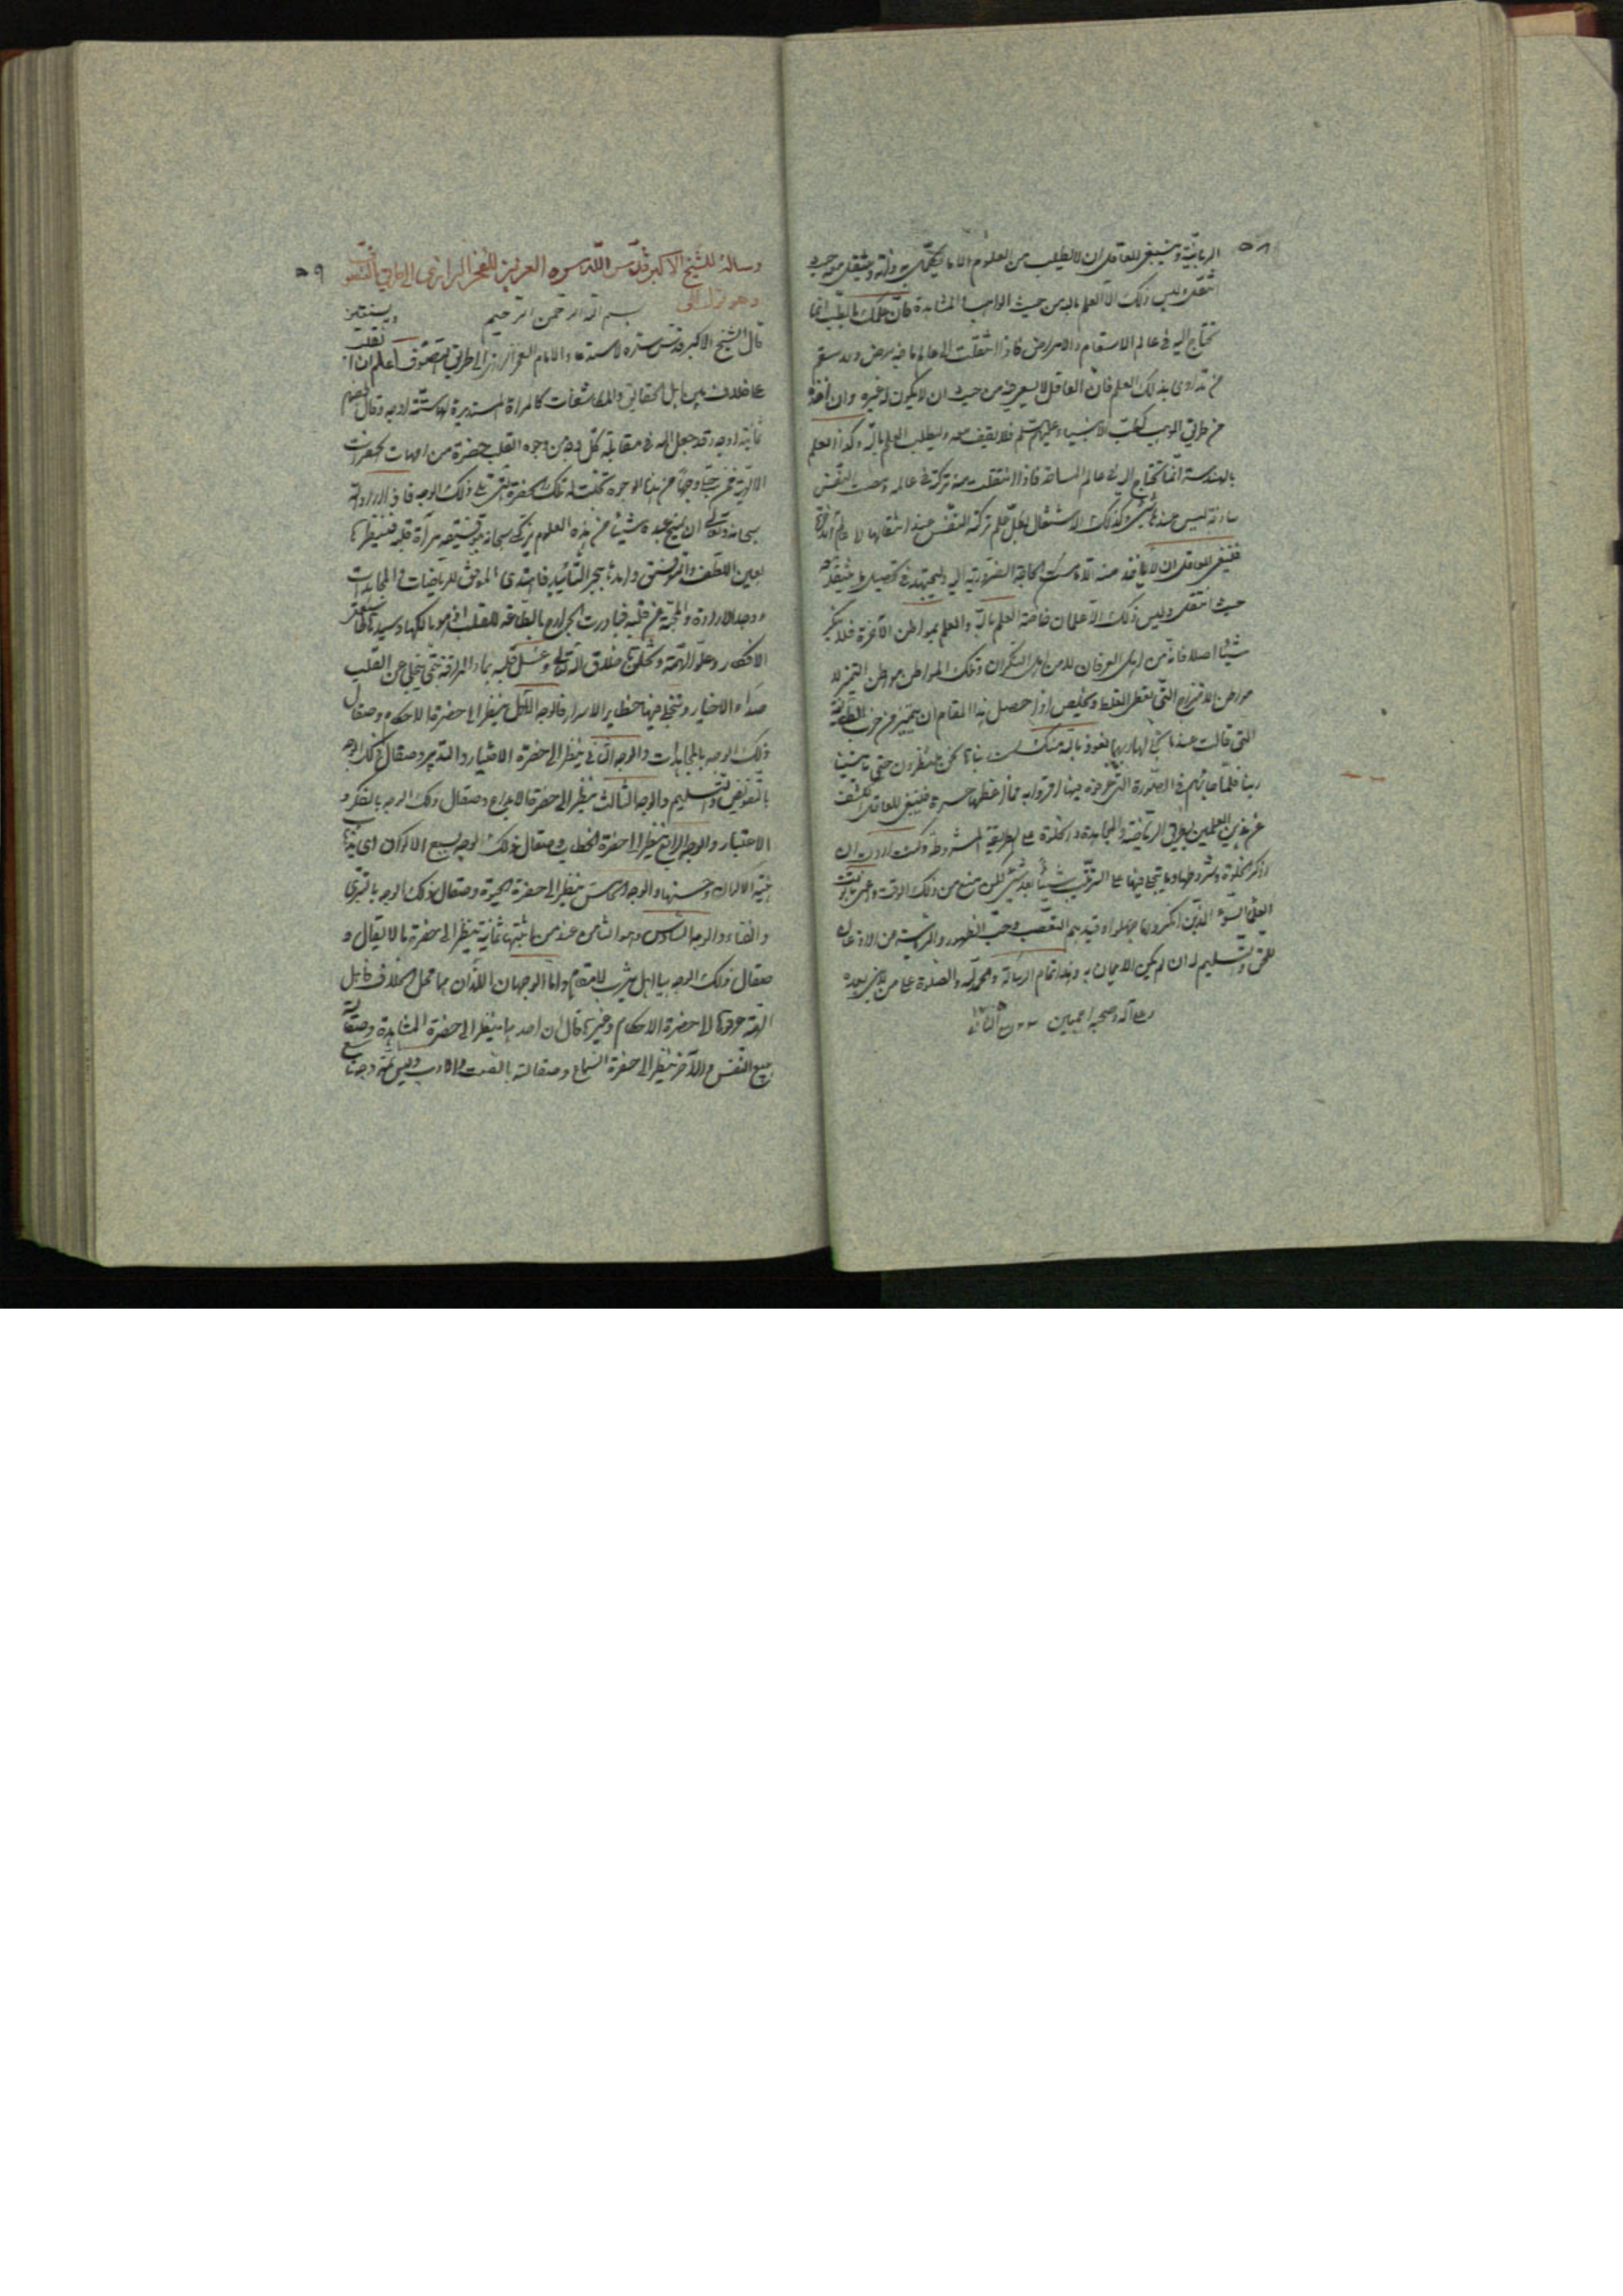 ٥٨
الربانية وينبغي للعاقل ان لا يطلب من العلوم الا ما يكمل به ذاته وينتقل معه حيث
انتقل وليس ذلك الا العلم بالله من حيث الوهب والمشاهدة فان علمك بالطب انما
تحتاج اليه في عالم الاسقام والامراض فاذا انتقلت الى عالم ما فيه مرض ولا سقم
من تداوى بذلك العلم فان العاقل لا يسعى من حيث ان لا يكون له غيره وان اخذه
من طريق الوهب كطب الانبياء عليهم السلم فلا يقف معه وليطلب العلم بالله وكذا العلم
بالهندسة انما تحتاج اليه في عالم المساحة فاذا انتقلت منه تركته في عالمه ومضت النفس
ساذجة ليس عندها شيء وكذلك الاشتغال بكل علم تركته النفس عند انتقالها الى عالم الآخرة
فينبغي للعاقل ان لا يأخذ منه الا ما مست الحاجة الضرورية اليه وليجتهد في تحصيل ما ينتقل معه
حيث انتقل وليس ذلك الا علمان خاصة العلم بالله والعلم بمواطن الآخرة فلا ينكر
شيئا اصلا فانه من اهل العرفان لا من اهل النكران وتلك المواطن مواطن التميز لا
مواطن الامتزاج التي تعطي الغلط وتخلص اذا حصل هذا المقام ان يتميز من حزب الطائفة
التي قالت عندما تجلى لها ربها نعوذ بالله منك لست ربنا ها نحن منتظرون حتى ياتينا
ربنا فلما جاءهم في الصورة التي عرفوه فيها اقروا به فما اعظمها حسرة فينبغي للعاقل الكشف
عن هذين العلمين بطريق الرياضة والمجاهدة والخلوة على الطريقة المشروطة وكنت اردت ان
اذكر الخلوة وشروطها وما يتجلى فيها على الترتيب شيئا بعد شيء لكن منع من ذلك الوقت واعني بالوقت
العلماء السوء الذين انكروا ما جهلوا وقيدهم التعصب وحب الظهور والرياسة عن الاذعان
للحق والتسليم له ان لم يكن الايمان به وهذا تمام الرسالة والحمد لله والصلوة على من لا نبي بعده
وعلى آله وصحبه اجمعين
٥٩
رسالة للشيخ الاكبر قدس الله سره العزيز للفخر الرازي الى طريق التصوف
بسم الله الرحمن الرحيم
قال الشيخ الاكبر قدس سره لاستدعاء الامام الفخر الرازي الى طريق التصوف اعلم ان القلب
على خلاف بين اهل الحقايق والمكاشفات كالمرآة المستديرة لها ستة اوجه وقال بعضهم
ثمانية اوجه وقد جعل الله في مقابلة كل وجه من وجوه القلب حضرة من امهات الحضرات
الالهية فمتى جلي وجها من هذه الوجوه تجلت له تلك الحضرة في ذلك الوجه فاذا اراد الله
سبحانه وتعالى ان يمنح عبده شيئا من هذه العلوم تولى سبحانه بتوفيقه مرآة قلبه فينظرها
بعين اللطف والتوفيق وامده ببحر التأييد فاهتدى الموفق للرياضات والمجاهدات
ووجد الارادة والمحبة من قلبه فبادرت الجوارح بالطاعة للقلب اذ هو مالكها وسيدها فاستعمل
الافكار وعلو الهمة وتخلق باخلاق الله تعالى وغسل قلبه بماء المراقبة حتى ينجلي عن القلب
صداء الاغيار وتتجلى فيها حظاير الاسرار فالوجه الاول ينظر الى حضرة الاحكام وصقال
ذلك الوجه بالمجاهدات والوجه الثاني ينظر الى حضرة الاختيار والتدبير وصقال ذلك الوجه
بالتفويض والتسليم والوجه الثالث ينظر الى حضرة الابداع وصقال ذلك الوجه بالفكر و
الاعتبار والوجه الرابع ينظر الى حضرة الخطاب وصقال ذلك الوجه بسبع الاكوان
والوجه الخامس ينظر الى حضرة الحيوة وصقال ذلك الوجه بالتبري
والفناء والوجه السادس وهو الثامن عند من اثبتها ثمانية ينظر الى حضرة ما لا يقال و
صقال ذلك الوجه بيا اهل يثرب لا مقام واما الوجهان اللذان هما محل الخلاف
حضرة الاحكام وغيرها قال ان احدهما ينظر الى حضرة المشاهدة وصقاله
ببيع النفس والآخر ينظر الى حضرة السماع وصقالته بالصمت والادب وليس ثمه وجه تاسع